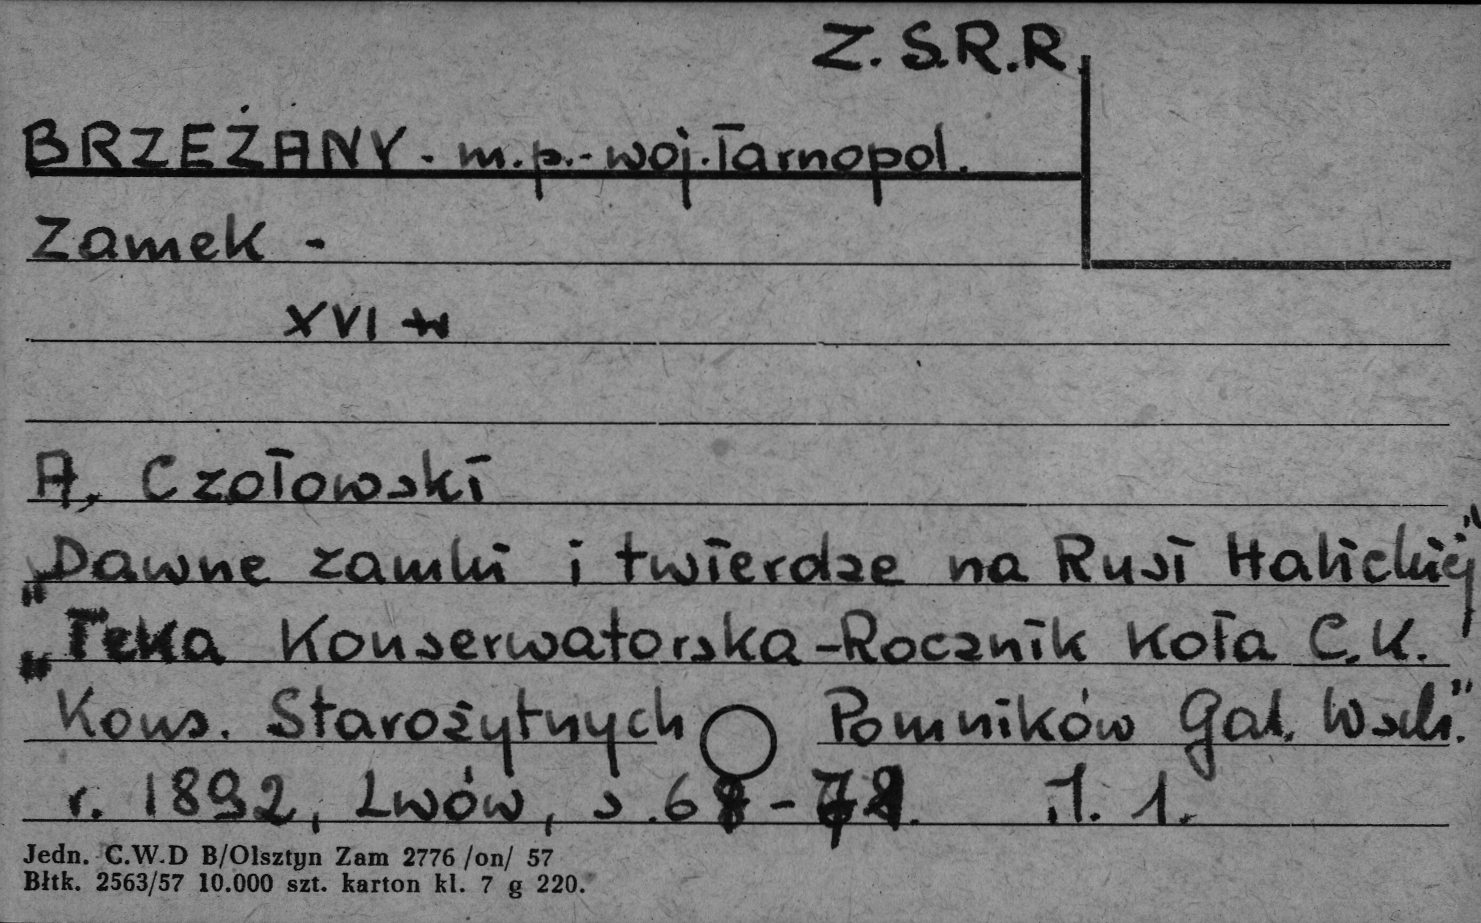 Z.S.R.R.
BRZEŻANY - m.p. - woj. Tarnopol.
Zamek -
XVI w
A. Czołowski
"Dawne zamki i twierdze na Rusi Halickiej"
"Teka Konserwatorska - Rocznik Koła C.K.
Kons. Starożytnych Pomników Gal. Wsch."
r. 1892, Lwów, s. il. 1.
Jedn. C.W.D B/Olsztyn Zam 2776 /on/ 57
Błtk. 2563/57 10.000 szt. karton kl. 7 g 220.